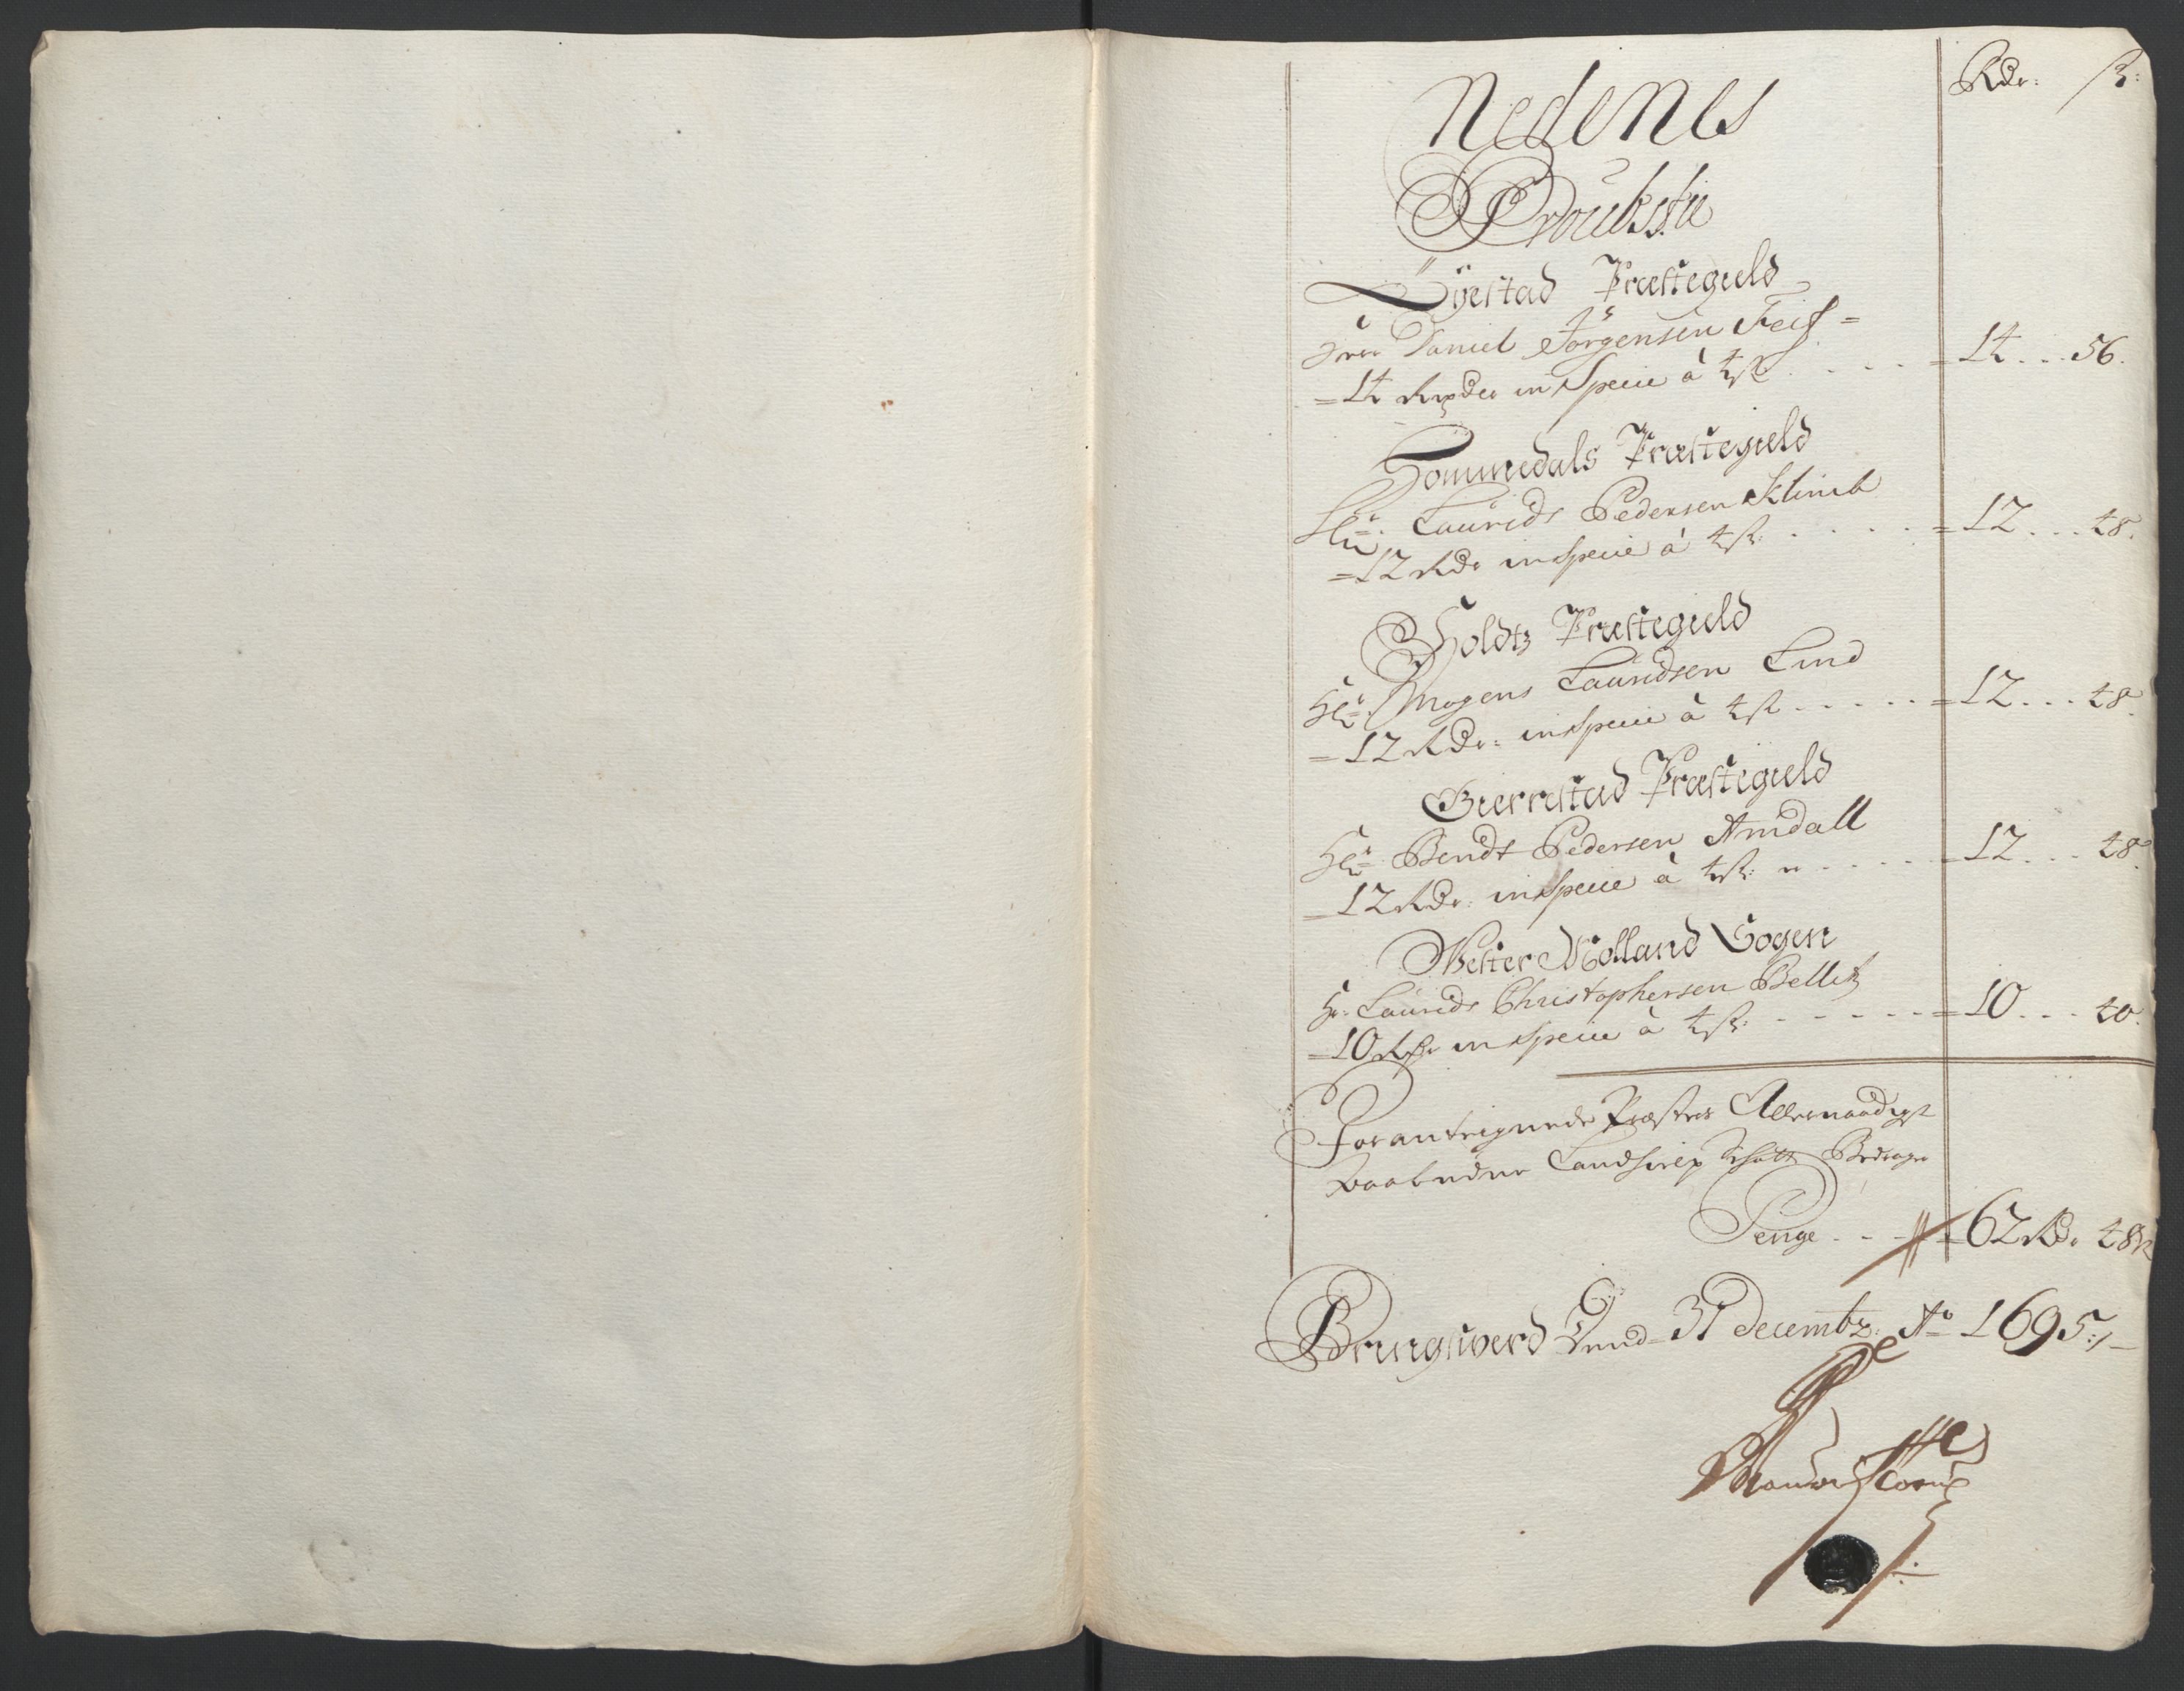 Rdr: ß:
Nedenes
Proukstie
Øyestad Præstegield
Herr Daniel Jörgensen Feif =
= 14 Rixdr in Specie à 4 ß . . . . = 14 . . . 56.
Hommedals Præstegield
Hr: Laurids Pedersen Klimb
= 12 Rdr in Specie à 4 ß: . . . . = 12 . . . 48.
Holdtz Præstegield
Hr: Mogens Lauridsen Lind
= 12 Rdr: in Specie à 4 ß . . . . . = 12 . . . 48.
Gierrestad Præstegield
Hr: Bendt Pedersen Arndall
= 12 Rdr: in Specie à 4 ß: . . . . = 12 . . . 48.
Wester Molland Sogen
Hr: Laurids Christophersen Belletz
= 10 Rdr in Specie à 4 ß: . . . . . = 10 . . . 40.
Foranteignede Præsters Allernaadigst
Landhielp Schatt Bedrager
Penge . . = 62 Rdr 48 ß
Bringsverd Dend 31 Decembr: Ao 1695:/